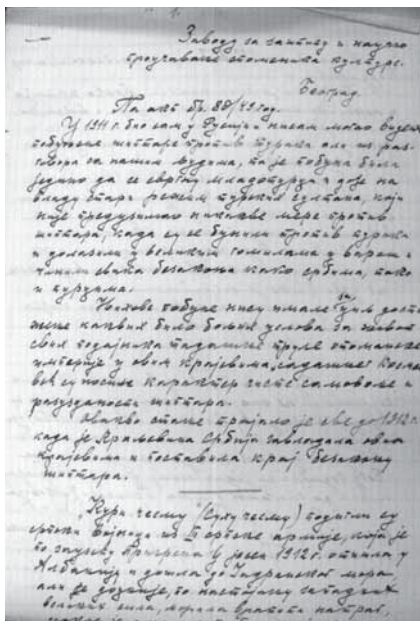 Заводу за заштиту и научно
проучавање споменика културе.
Београд.
На акт бр. 88/49 год.
У 1911 г. био сам у Русији и нисам могао видети
побуњене шиптаре против турака али из раз-
говора са нашим људима, та је побуна била
једино да се свргну младотурци и дође на
владу стари режим турских султана, који
није предузимао никакве мере против
шиптара, када су се бунили против турака
и долазили у великим гомилама у варош и
чинили свата безакона како србима, тако
и турцима.
Њихове побуне нису имале за циљ дости
жење каквих било бољих услова за живот
својих поданика тадашње труле отоманске
империје у овим крајевима, садашњег Косма
већ су носиле карактер чисте самовоље и
разузданости шиптара.
Овакво стање трајало је све до 1912 г.
када је Краљевина Србија завладала овим
крајевима и поставила крај безакону
шиптара.
„Кури чесму" (Суву чесму) подигли су
српски војници из III српске армије, која је
по заузећу Призрена у јесен 1912 г. отишла у
Албанију и дошла до Јадранског мора
али је доцније, по настојању западних
великих сила, морала вратити натраг,